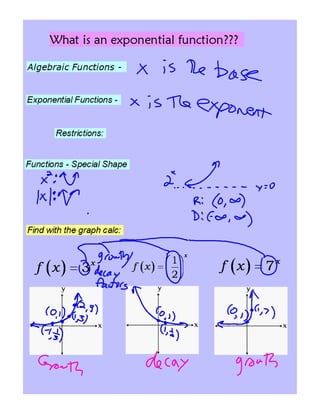 What is an exponential function???
Algebraic Functions - x is the base
Exponential Functions - x is The exponent
Restrictions:
Functions - Special Shape
x²:
|x|:
2ˣ
y=0
R: (0,∞)
D: (-∞,∞)
Find with the graph calc:
growth/decay factors
f(x)=3ˣ f(x)=(1/2)ˣ f(x)=7ˣ
y y y
(2,9)
(0,1) (1,3) (0,1) (0,1) (1,7)
x x x
(-1,1/3) (1,1/2)
Growth decay growth